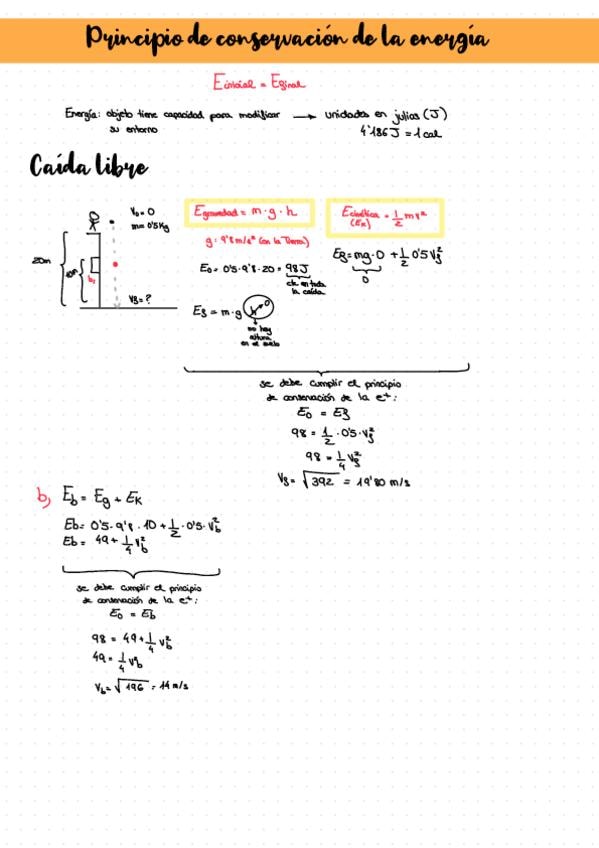 Principio de conservación de la energía
Einicial = Efinal
Energía: objeto tiene capacidad para modificar → unidades en julios (J)
su entorno 4'186 J = 1 cal
Caída libre
V₀ = 0
m = 0'5 Kg
20m
10m
b,
Vf = ?
Egravedad = m · g · h
g: 9'8 m/s² (en la Tierra)
E₀ = 0'5 · 9'8 · 20 = 98 J
cte en toda
la caída
Ef = m · g · h → 0
no hay
altura
en el suelo
Ecinética = 1/2 m v²
(Ek)
Ef = mg · 0 + 1/2 0'5 Vf²
0
se debe cumplir el principio
de conservación de la e⁺:
E₀ = Ef
98 = 1/2 · 0'5 · Vf²
98 = 1/4 Vf²
Vf = √392 = 19'80 m/s
b) Eb = Eg + EK
Eb = 0'5 · 9'8 · 10 + 1/2 · 0'5 · Vb²
Eb = 49 + 1/4 Vb²
se debe cumplir el principio
de conservación de la e⁺:
E₀ = Eb
98 = 49 + 1/4 Vb²
49 = 1/4 Vb²
Vb = √196 = 14 m/s